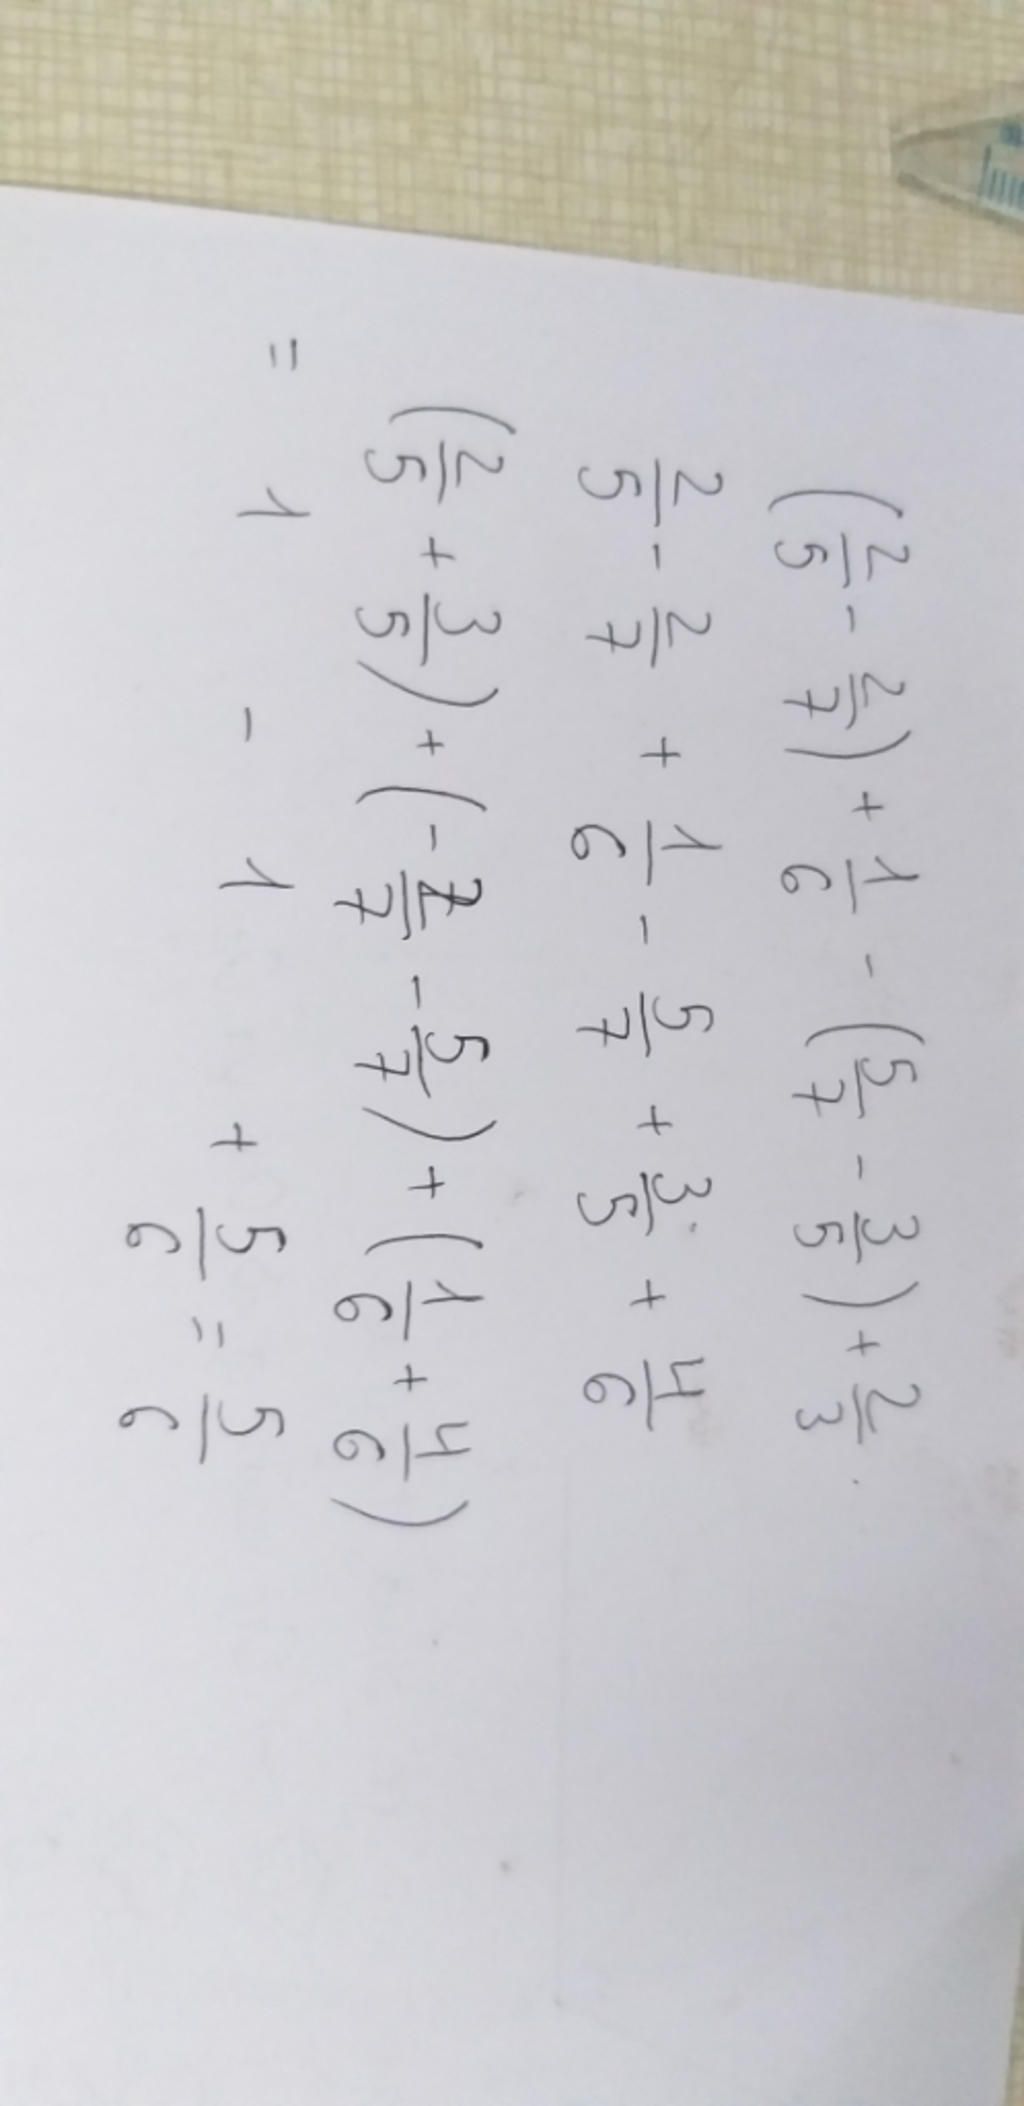 (2/5 - 2/7) + 1/6 - (5/7 - 3/5) + 2/3.
2/5 - 2/7 + 1/6 - 5/7 + 3/5 + 4/6
(2/5 + 3/5) + (-2/7 - 5/7) + (1/6 + 4/6)
= 1 - 1 + 5/6 = 5/6